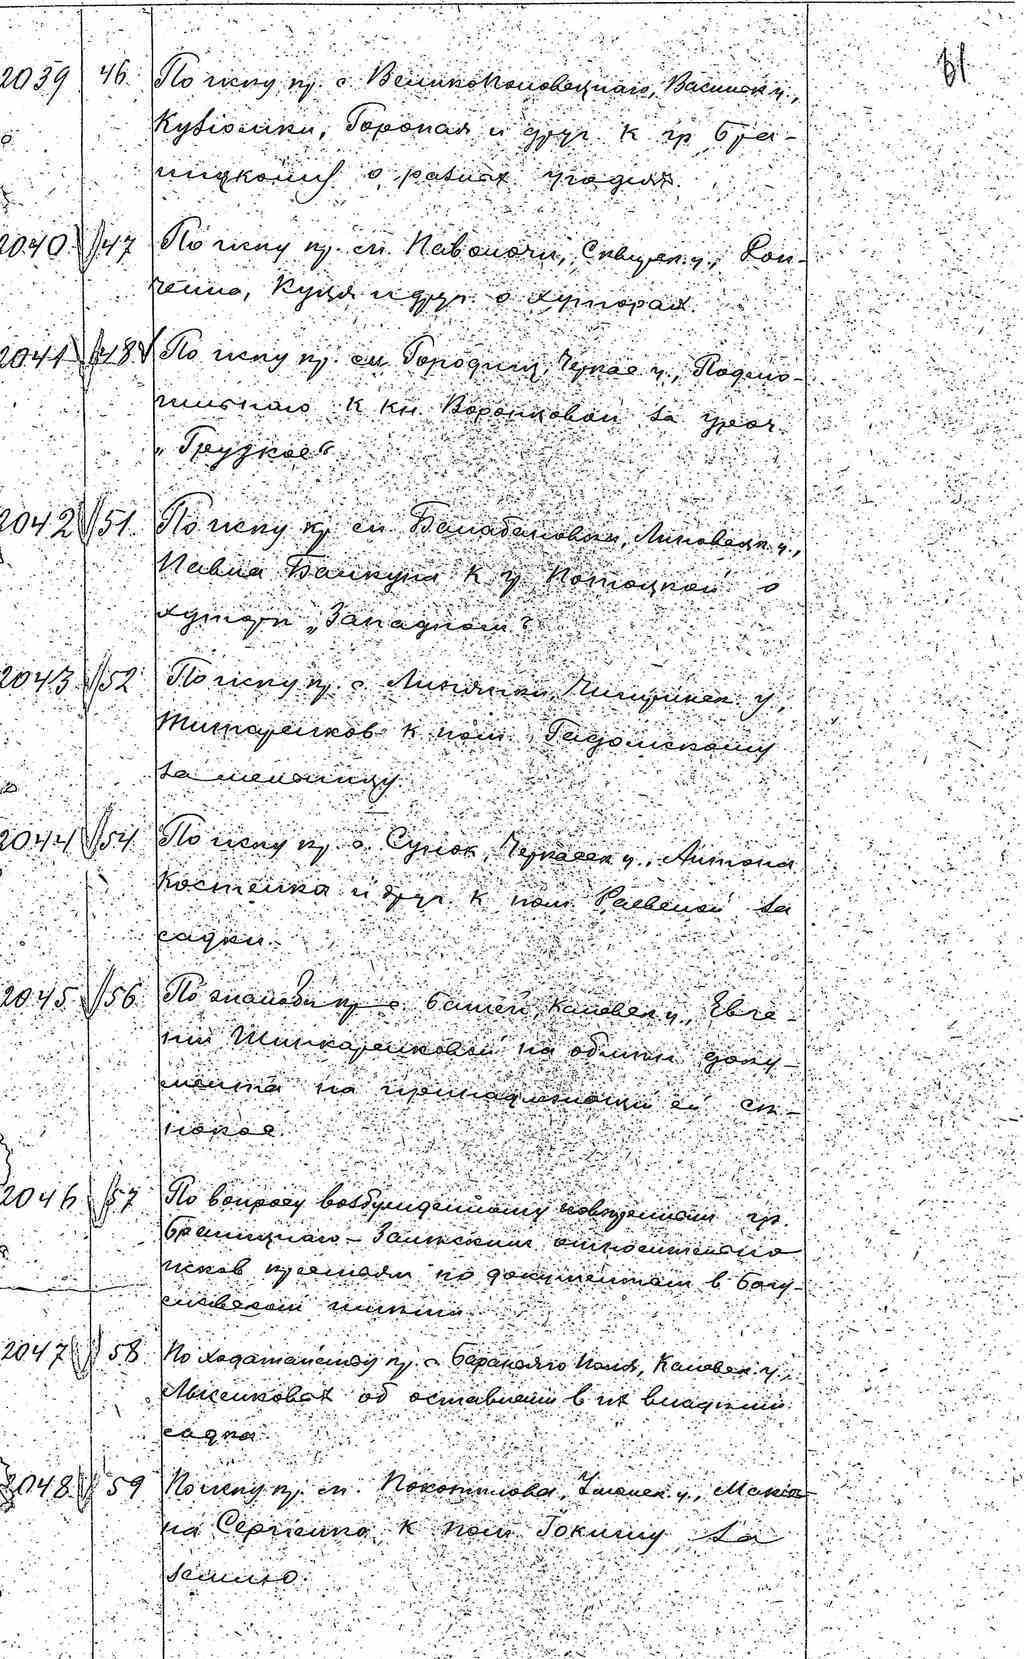 61
2039 46 По иску кр. с. Великополовецкаго, Васильк. у.,
Кузьомки, Горопая и друг. к гр. Бра-
ницкому о разных угодьях.
2040 47 По иску кр. м. Паволочи, Сквирск. у.,
ченко, Куця и друг. о хуторах.
2041 48 По иску кр. м. Городищ, Черкас. у., Подмо-
гильнаго к кн. Воронцовой за уроч.
„Грузкое“
2042 51 По иску кр. м. Балабановки, Липовецк. у.,
Павла Балкуна к гр. Потоцкой о
хуторе „Западном“
2043 52 По иску кр. с. Липянки, Чигиринск. у.,
Титаренков к пом. Гадомскому
за мельницу.
2044 54 По иску кр. с. Сунок, Черкасск. у., Антона
Костенка и друг. к пом. Раевской за
садки.
2045 56 По жалобе кр. с. Каневск. у., Евге-
нии Шинкаренковой на обмен доку-
мента на принадлежащий ей се-
нокос.
2046 57 По вопросу возбужденному поверенным гр.
Браницкаго – Залеским относительно
исков крестьян по документам в Богу-
славском имении.
2047 58 По ходатайству кр. с. Бараньяго Поля, Каневск. у.,
об оставлении в их владении
садка.
2048 59 По иску кр. м. Покотилова, Уманск. у.,
на Сергиенка к пом. за
землю.